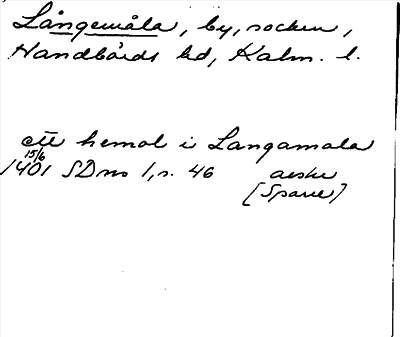 Långemåla, by, socken,
Handbörds hd, Kalm. l.
ett hemol i Langamala
15/6
1401 SDns 1, s. 46 avskr
[Sparre]